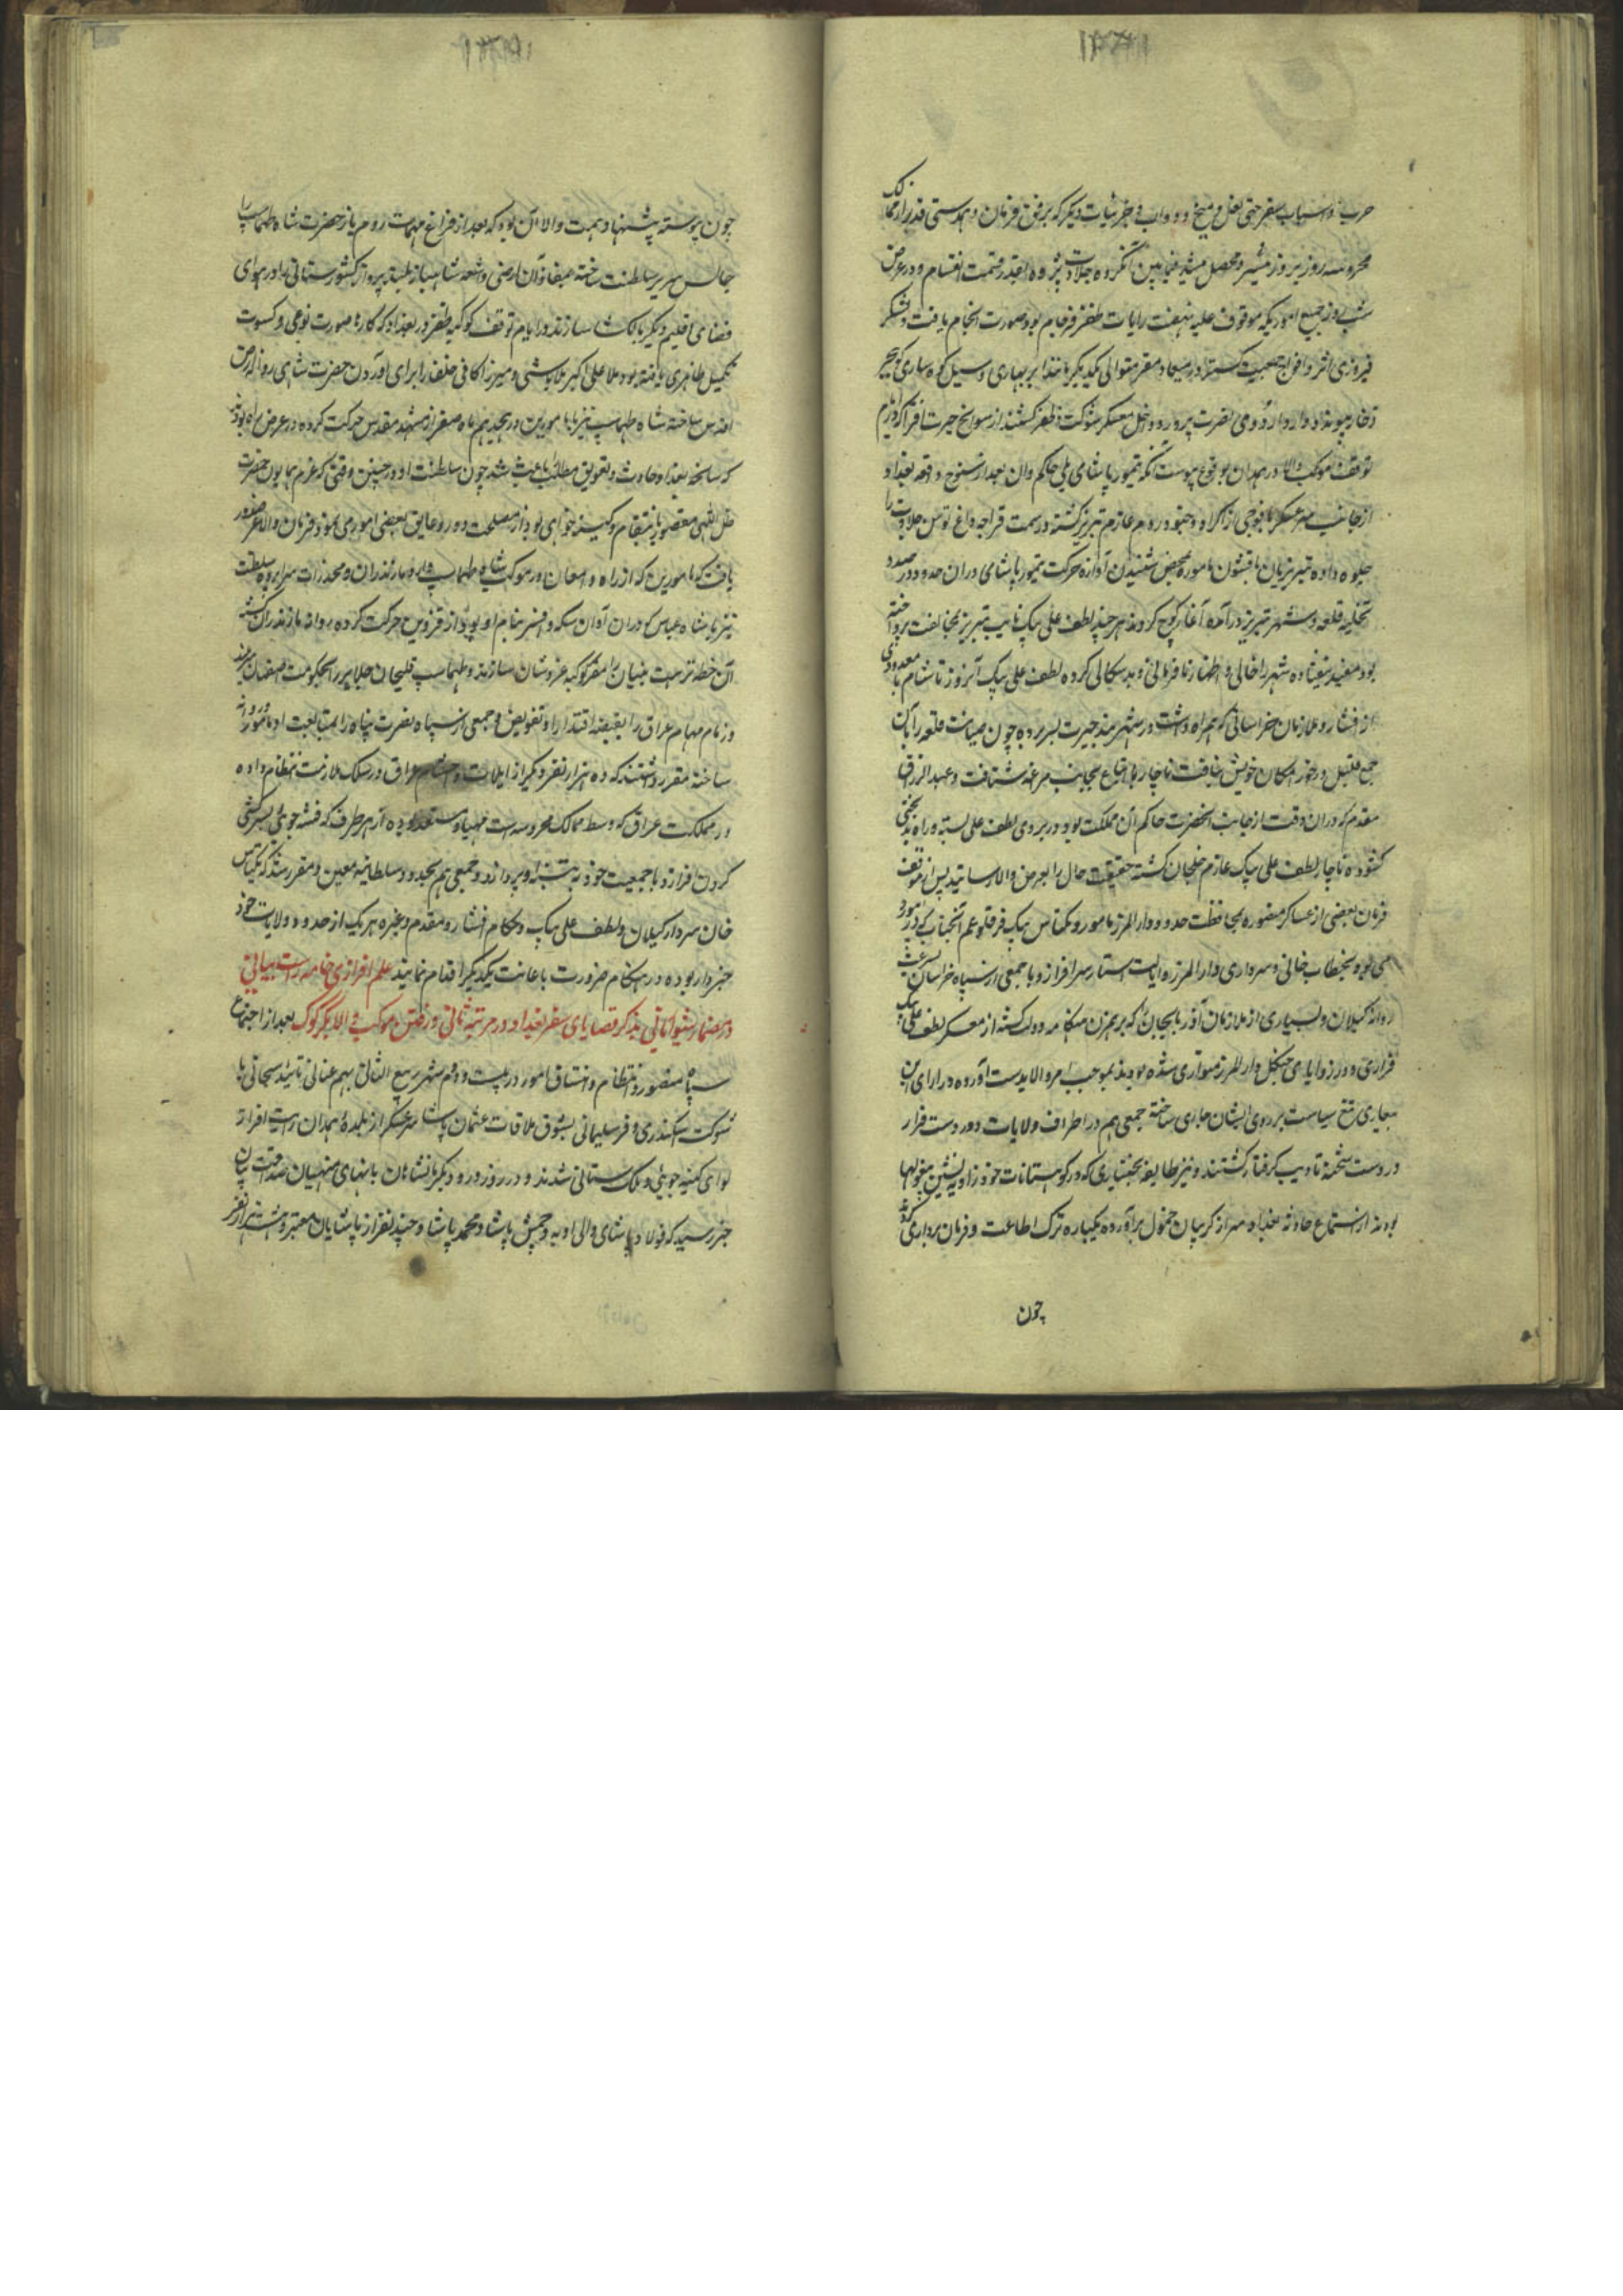 حرب و اسباب سفر حتی نعل و میخ و دواب و جزئیات دیگر که بر وفق فرمان و همدستی قدر از ممالک
محروسه روز بروز میسر و محصل میشد فیمابین آنگروه جلادت پژوه بقدر قسمت انقسام و در عرض
شب روز جمیع اموریکه موقوف علیه نهضت رایات ظفر فرجام بود صورت انجام یافت و لشکر
فیروزی اثر و افواج در میعاد مقرر متوالی یکدیگر مانند ابر بهاری و سیل کوهساری فوج فوج
وارد اردوی نصرت پرور و داخل معسکر شوکت و ظفر گشتند از سوانح حیرت افزا که در ایام
توقف موکب والا در همدان بوقوع پیوست آنکه تیمور پاشای ملی حاکم وان بعد از سنوح واقعه بغداد
از جانب سر عسکر با فوجی از اکراد و جنود روم عازم تبریز گشته در سمت قراجه داغ توسن جلادت را
جلوه داده تبریزیان با قشون ماموره بمحض شنیدن آوازه حرکت تیمور پاشای در آن حدود در صدد
تخلیه قلعه و شهر تبریز درآمده آغاز کوچ کردند هر چند لطف علی بیک نایب تبریز بمخالفت پرداخته
بود مفید نیفتاده شهر را خالی و اظهار نافرمانی و بدسگالی کرده لطف علی بیک آنروز تا شام با معدودی
از افشار و ملازمان خراسانی که همراه داشت در شهر تبریز بسر برده چون صیانت قلعه را بآن
جمع قلیل در حوز امکان خویش نیافت ناچار با اتباع بجانب مراغه شتافت و عبدالرزاق
مقدم که در آن وقت از جانب آنحضرت حاکم آن مملکت بود در بر روی لطف علی بسته و راه بدبختی
گشوده ناچار لطف علی بیک عازم خلخال گشته حقیقت حال را بعرض والا رسانید پس از موقف
فرمان بعضی از عساکر منصوره بمحافظت حدود دارالمرز مامور و بکتاش بیک قرقلو عم آنجناب که در ابیورد
می بود بخطاب خانی و سرداری دارالمرز و ایالت استار سرافراز و با جمعی از سپاه خراسان بسرعت
روانه گیلان و بسیاری از ملازمان آذربایجان که بر همزن هنگامه دولت گشته از معسکر لطف علی بیک
فراری و در زوایای جنگل دارالمرز متواری شده بودند بموجب امر والا بدست آورده در ازای این
تیغ سیاست بر روی ایشان جاری ساخته جمعی هم در اطراف ولایات دور دست فرار
در دست شحنه تادیب گرفتار گشتند و نیز طایفه بختیاری که در کوهستانات خود زاویه نشین بیغولها
بودند از استماع حادثه بغداد سر از گریبان خمول برآورده یکباره ترک اطاعت و فرمانبرداری کردند
چون
چون پیوسته پیشنهاد همت والا آن بود که بعد از فراغ مهمات روم باز حضرت شاه طهماسب را
جالس سریر سلطنت ساخته و شاهباز بلند پرواز کشورستانی را در هوای
فضای اقلیم دیگر بالگشا سازند در ایام توقف کوکبه ظفر در بغداد که کارها صورت نوعی و کسوت
تکمیل ظاهری یافته بود ملا علی اکبر ملاباشی و میرزا کافی خلفا را برای آوردن حضرت شاهی روانه ارض
اقدس ساخته شاه طهماسب نیز با مامورین در هجدهم ماه صفر از مشهد مقدس حرکت کرده در عرض راه بود
که سانحه بغداد حادث و تعویق مطلب را باعث شد چون سلطنت او در چنین وقتی که عزم همایون حضرت
ظل اللهی مقصور بانتقام و کینه خواهی بود از مصلحت دور و عایق بعضی امور می نمود فرمان والا عز صدور
یافت که مامورین که از راه دامغان در موکب شاه طهماسب وارد مازندران و مخدرات سراپرده سلطنت
نیز با شاه عباس که در آن آوان سکه و افسر بنام او بود از قزوین حرکت کرده روانه مازندران گشته
آن خطه نزهت بنیان را مقر کوکبه عز و شان سازند و طهماسب قلیخان جلایر را بحکومت اصفهان
و زمام مهام عراق را بقبضه اقتدار او تفویض و جمعی از سپاه نصرت پناه را بمتابعت او مامور
ساخته مقرر داشتند که ده هزار نفر دیگر از ایلات و احشام عراق در سلک ملازمت انتظام داده
در مملکت عراق که وسط ممالک محروسه است مهیا و مستعد بوده از هر طرف که فتنه جوئی بسرکشی
گردن افرازد با جمعیت خود به تنبیه او پردازد و جمعی هم بحدود سلطانیه معین و مقرر شد که بکتاش
خان سردار گیلان و لطف علی بیک و حکام افشار و مقدم و غیره هر یک از حدود ولایات خود
خبردار بوده در هنگام ضرورت باعانت یکدیگر اقدام نمایند علم افرازی خامه راست بیانی
در مضمار شیوا بیانی بذکر قضایای سفر بغداد در مرتبه ثانی و رفتن موکب والا بکرکوک بعد از اجتماع
سپاه منصور و انتظام و اتساق امور در بیست و دوم شهر ربیع الثانی بهم عنانی تائید سبحانی با
شوکت اسکندری و فر سلیمانی بشوق ملاقات عثمان پاشا سر عسکر از بلده همدان رایت افراز
لوای کینه جوئی و ملک ستانی شدند و در روز ورود بانهای منهیان صداقت بیان
خبر رسید که فولاد پاشای والی ادنه و حمش پاشا و محمد پاشا و چند نفر از پاشایان معتبر و بیست هزار نفر